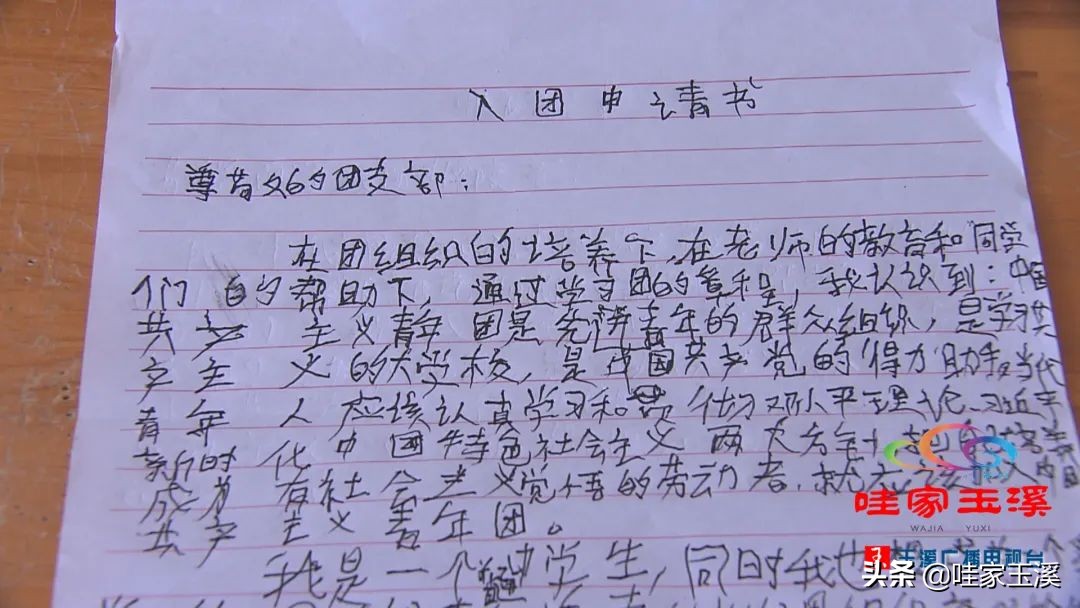 入团申请书
尊敬的团支部：
在团组织的培养下，在老师的教育和同学
们的帮助下，通过学习团的章程，我认识到：中国
共产主义青年团是先进青年的群众组织，是学习共
产主义的大学校，是中国共产党的得力助手当代
青年人应该认真学习和贯彻邓小平理论、习近平
新时代中国特色社会主义两大
成为有社会主义觉悟的劳动者，就应该
共产主义青年团。
我是一个 中学生，同时我也
哇家玉溪
WAJIA YUXI
玉溪广播电视台
头条 @哇家玉溪